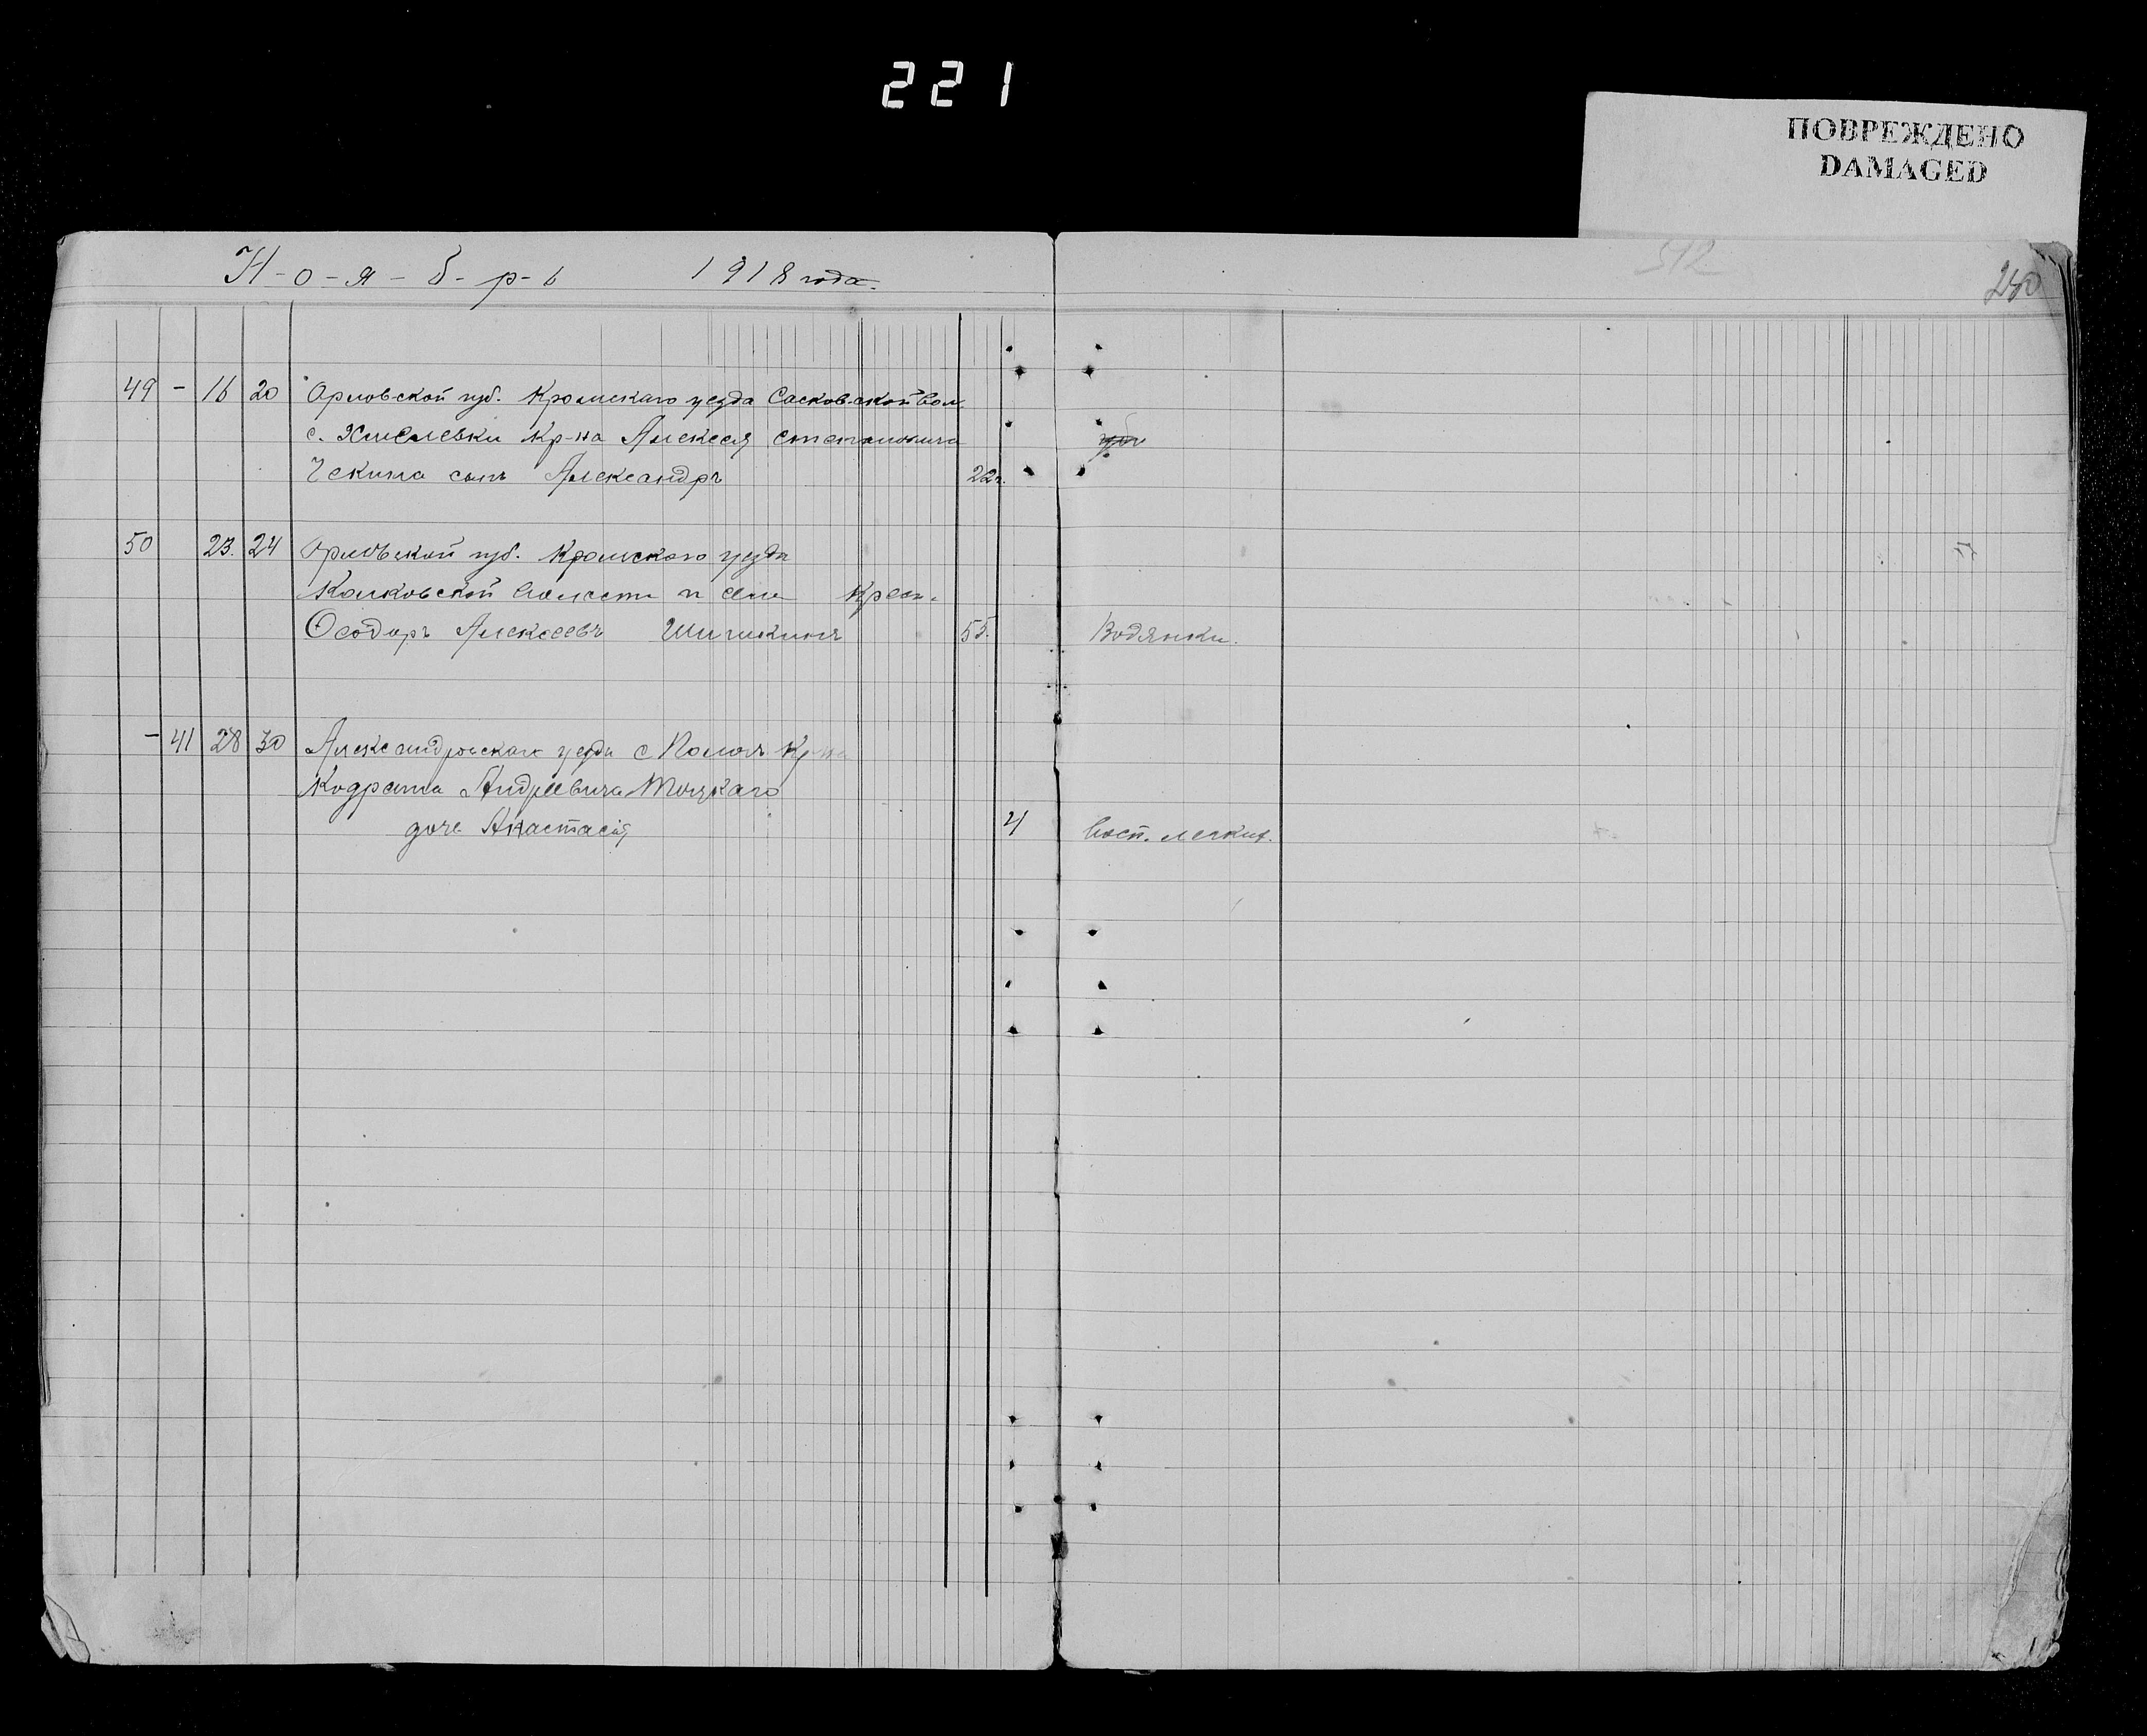 221
ПОВРЕЖДЕНО
DAMAGED
Н-о-я-б-р-ь 1918 года.
512
250
49 - 16 20 Орловской губ. Кромскаго уезда Сасковской Вол.
с. Хмелевки кр-на Алексея Степановича
Чекина сынъ Александръ 22г.
50 23. 24 Орловской губ. Кромского уезда
волости Крест.
Ѳеодоръ Алексеевъ Шишкинъ 55. Водянки.
- 41 28 30 Александровскаго уезда с кр-на
Кодрата Андреевича
дочь Анастасія 4 Восп. легких.